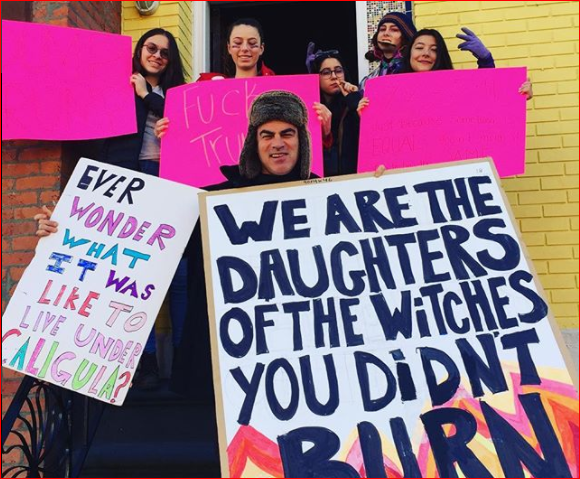 FUCK
TRUMP
EVER
WONDER
WHAT
IT WAS
LIKE TO
LIVE UNDER
CALIGULA?
WE ARE THE
DAUGHTERS
OF THE WITCHES
YOU DIDN'T
BURN